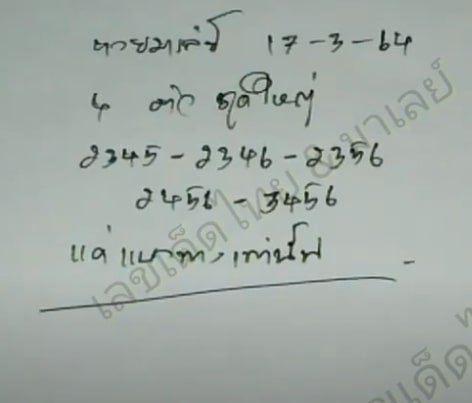 หวยมาเลย์ 17-3-64
4 ตัว ชุดใหญ่
2345 - 2346 - 2356
2456 - 3456
แค่แนวทางเท่านั้น
เลขเด็ดไทย & มาเลย์